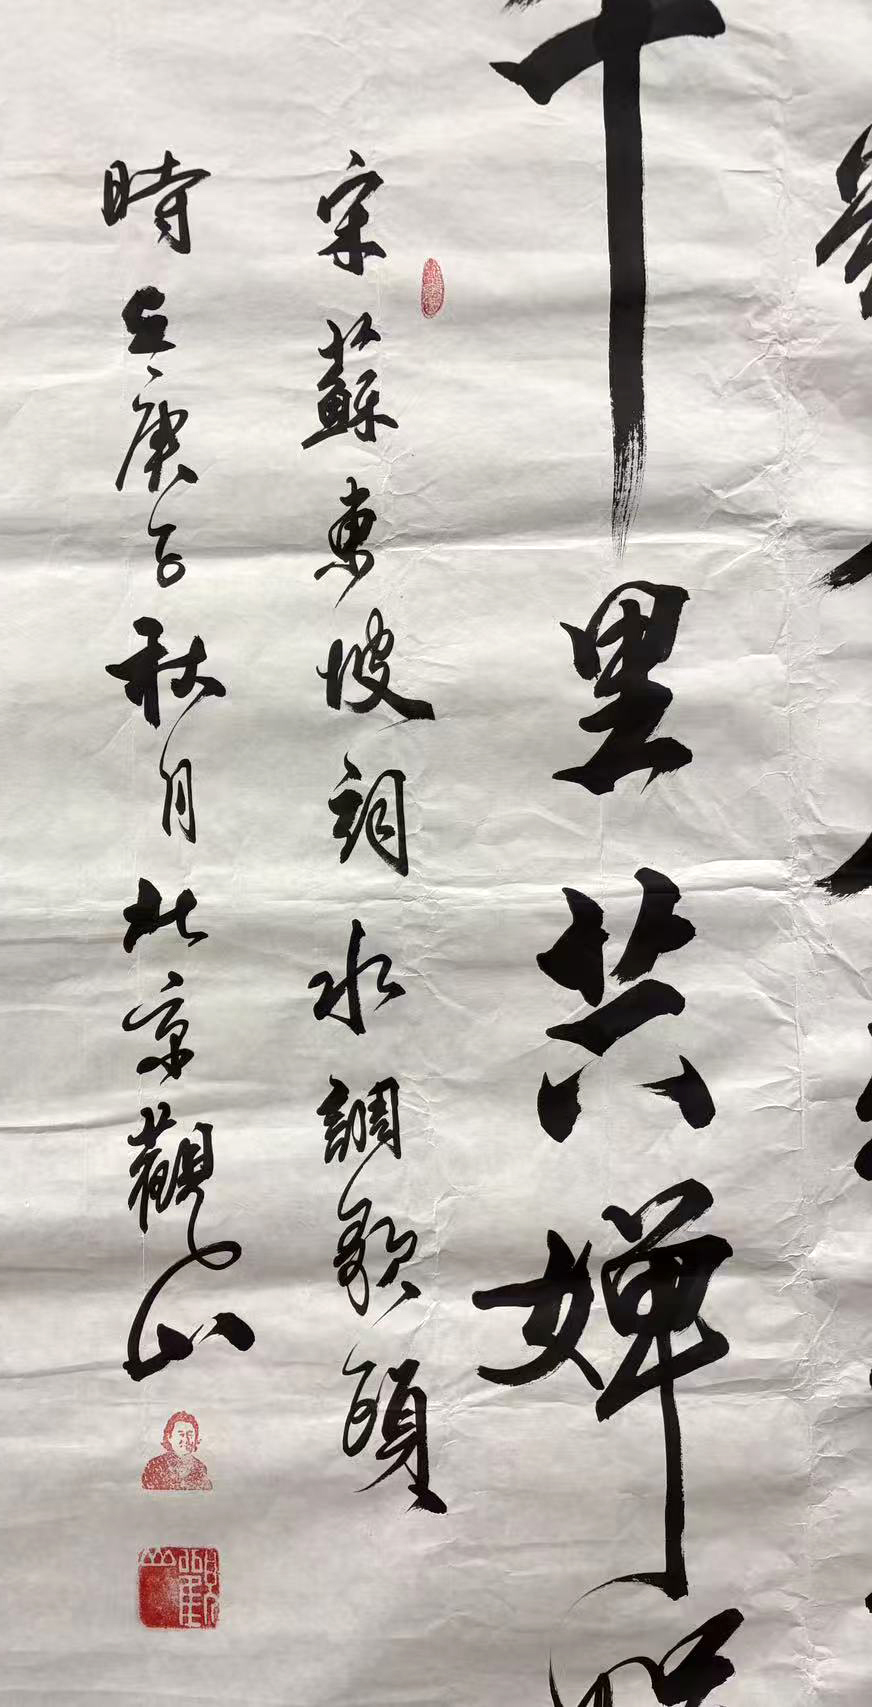 千里共嬋娟
宋蘇東坡詞水調歌頭
時在庚子秋月北京觀山
觀山